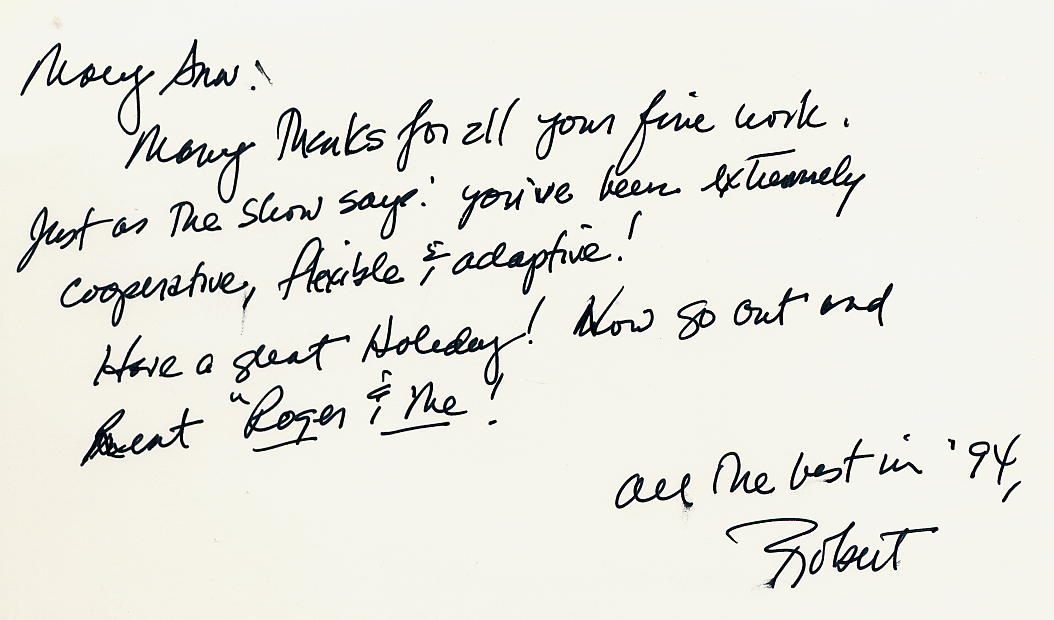 Mary Ann!
Many Thanks for all your fine work.
Just as The Show says: you've been extremely
cooperative, flexible & adaptive!
Have a great Holiday! Now go out and
Rent "Roger & Me!
All The best in '94,
Robert